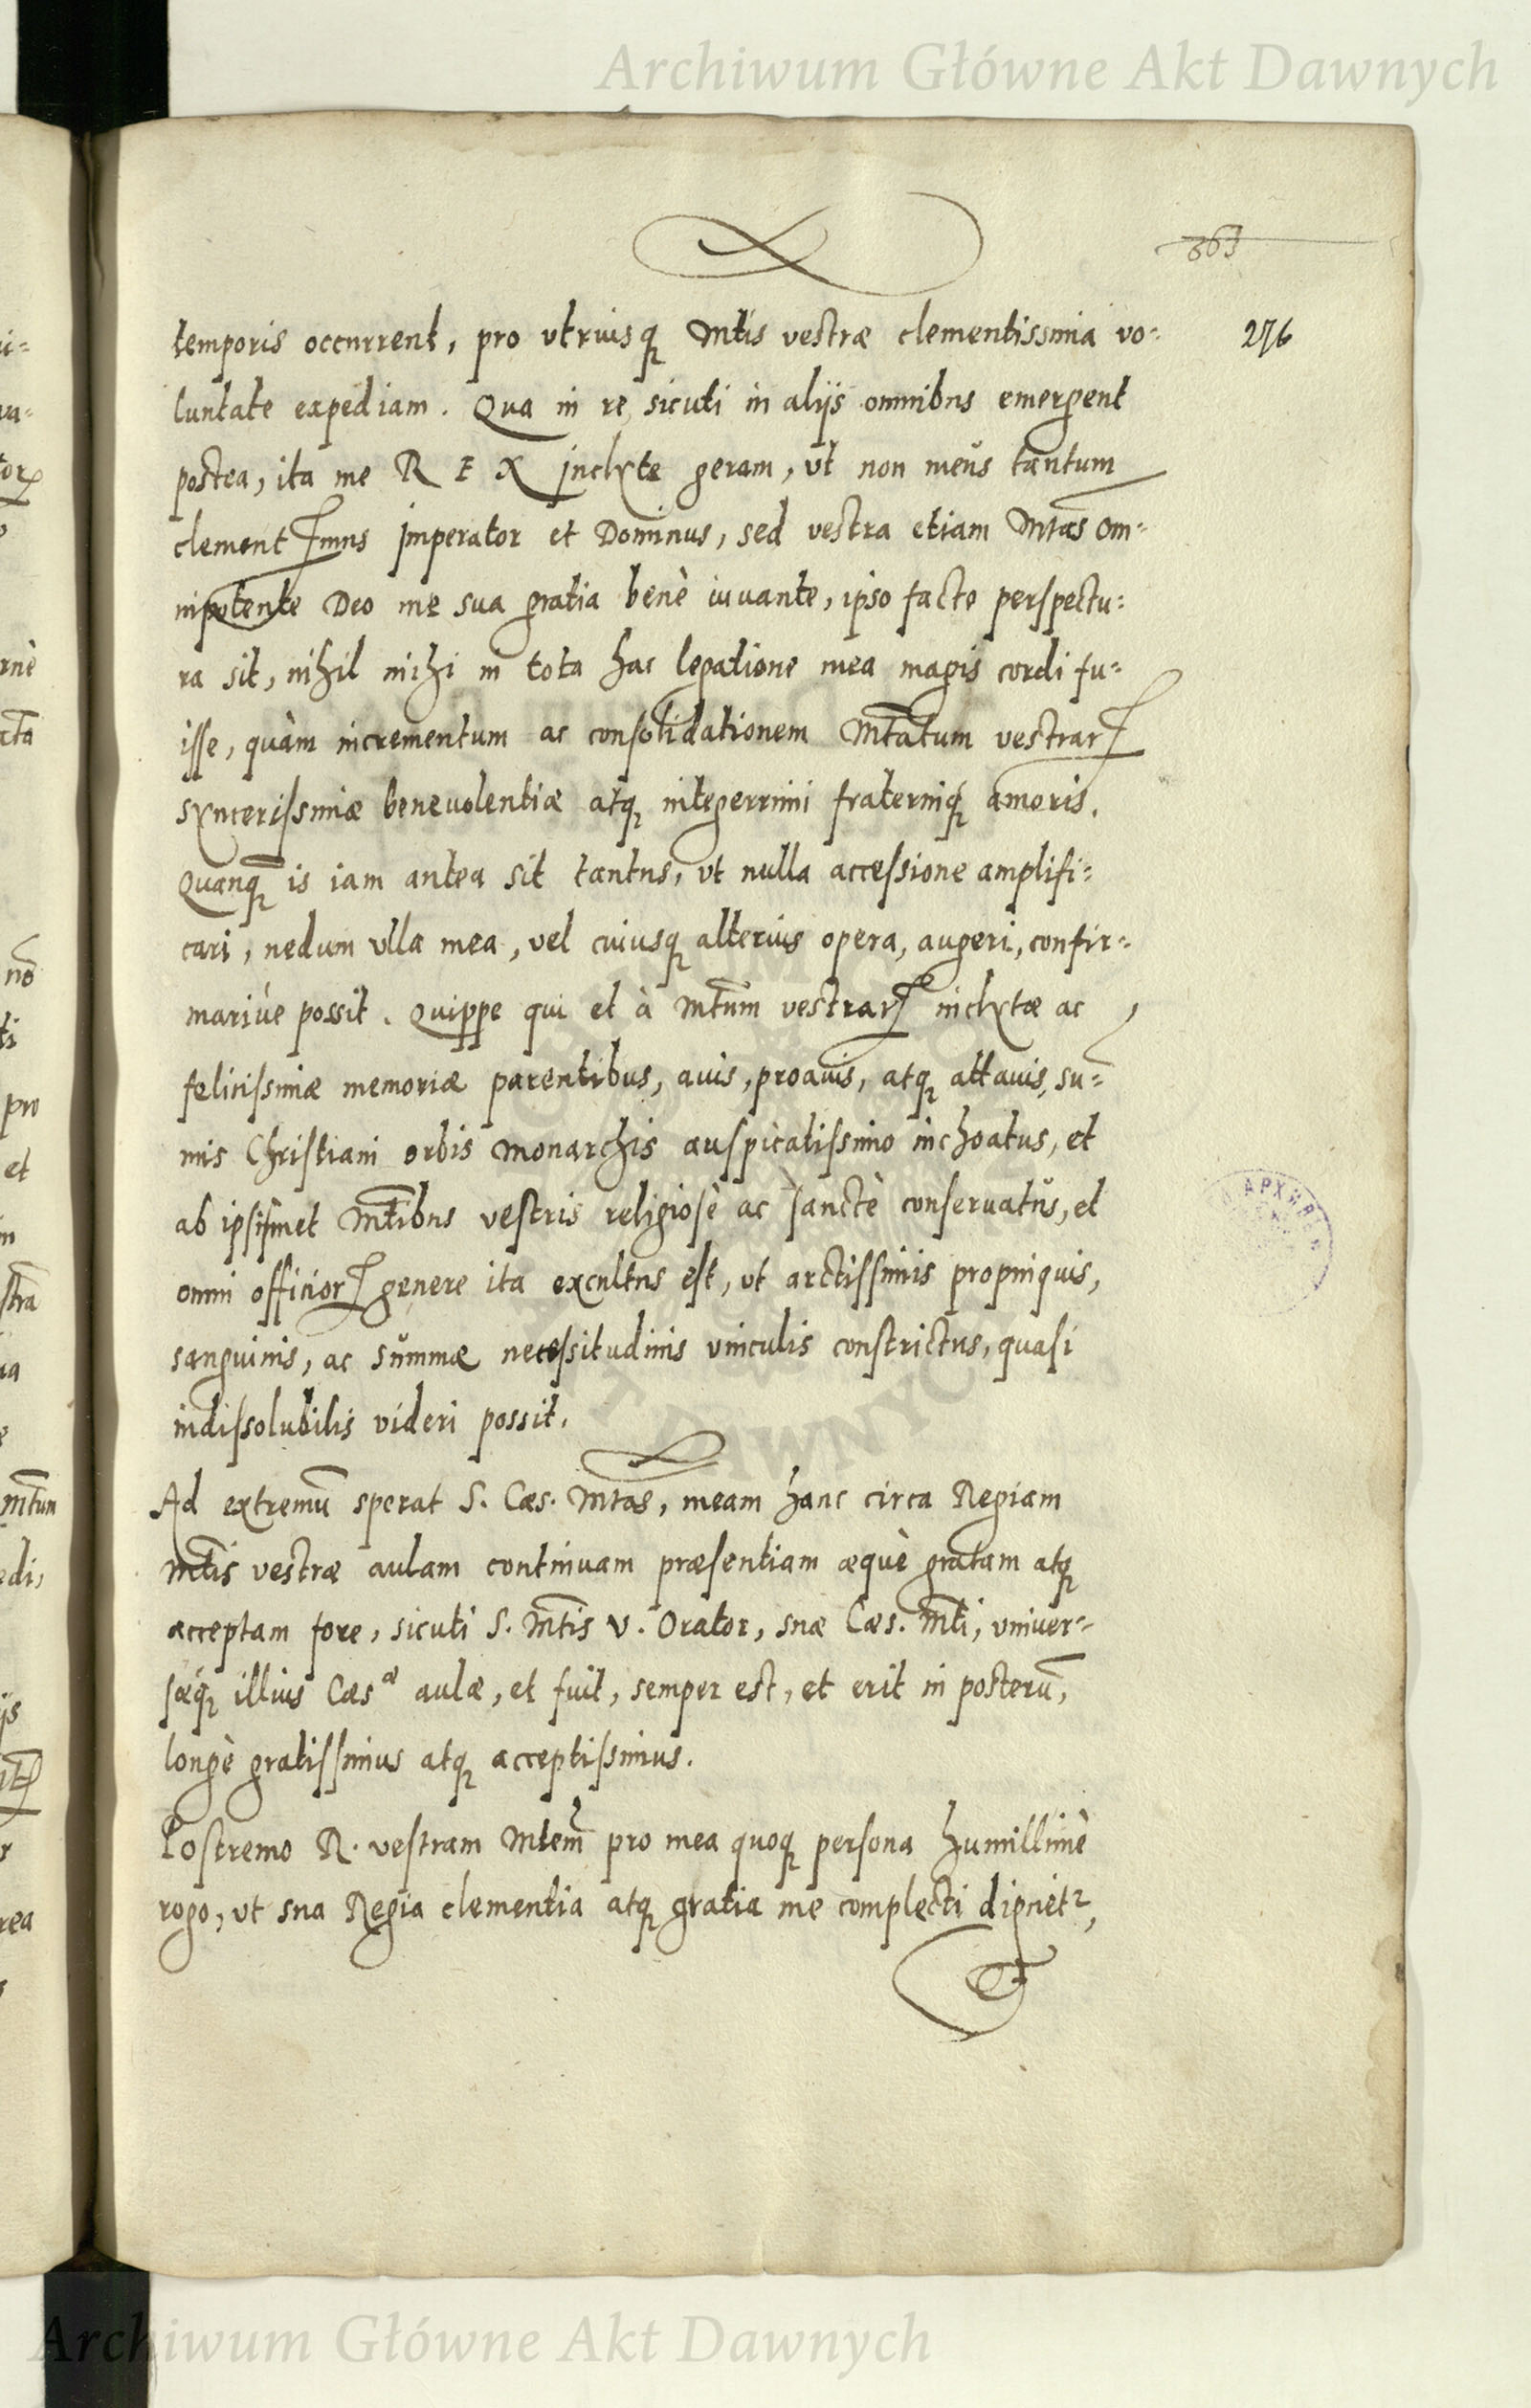 Archiwum Główne Akt Dawnych
363
276
temporis occurrent, pro vtriusq Mtis vestræ clementissima vo=
luntate expediam. Qua in re, sicuti in alijs omnibus emergent
postea, ita me REX jnclyte geram, vt non meus tantum
clementssmus jmperator et Dominus, sed vestra etiam Mtas om=
nipotente Deo me sua gratia benè iuuante, ipso facto perspectu=
ra sit, nihil mihi in tota hac legatione mea magis cordi fu=
isse, quàm incrementum ac consolidationem Mtatum vestrar
syncerissimæ beneuolentiæ atq integerrimi fraterniq amoris.
Quanq is iam antea sit tantus, vt nulla accessione amplifi=
cari, nedum vlla mea, vel cuiusq alterius opera, augeri, confir=
mariùe possit. Quippe qui et à Mtum vestrar inclytæ ac
felicissimæ memoriæ parentibus, auis, proauis, atq attauis, su=
mis Christiani orbis Monarchis auspicatissimo inchoatus, et
ab ipsismet Mtibus vestris religiosè ac sanctè conseruatus, et
omni officior genere ita excultus est, vt arctissimis propinquis,
sanguinis, ac summæ necessitudinis vinculis constrictus, quasi
indissolubilis videri possit.
Ad extremū sperat S. Cæs. Mtas, meam hanc circa Regiam
Mtis vestræ aulam continuam præsentiam æquè gratam atq
acceptam fore, sicuti S. Mtis V. Orator, suæ Cæs. Mti, vniuer=
sæq illius Cæsæ aulæ, et fuit, semper est, et erit in posterū,
longè gratissimus atq acceptissimus.
Postremo R. vestram Mtem pro mea quoq persona humillimè
rogo, vt sua Regia clementia atq gratia me complecti dignet,
Archiwum Główne Akt Dawnych